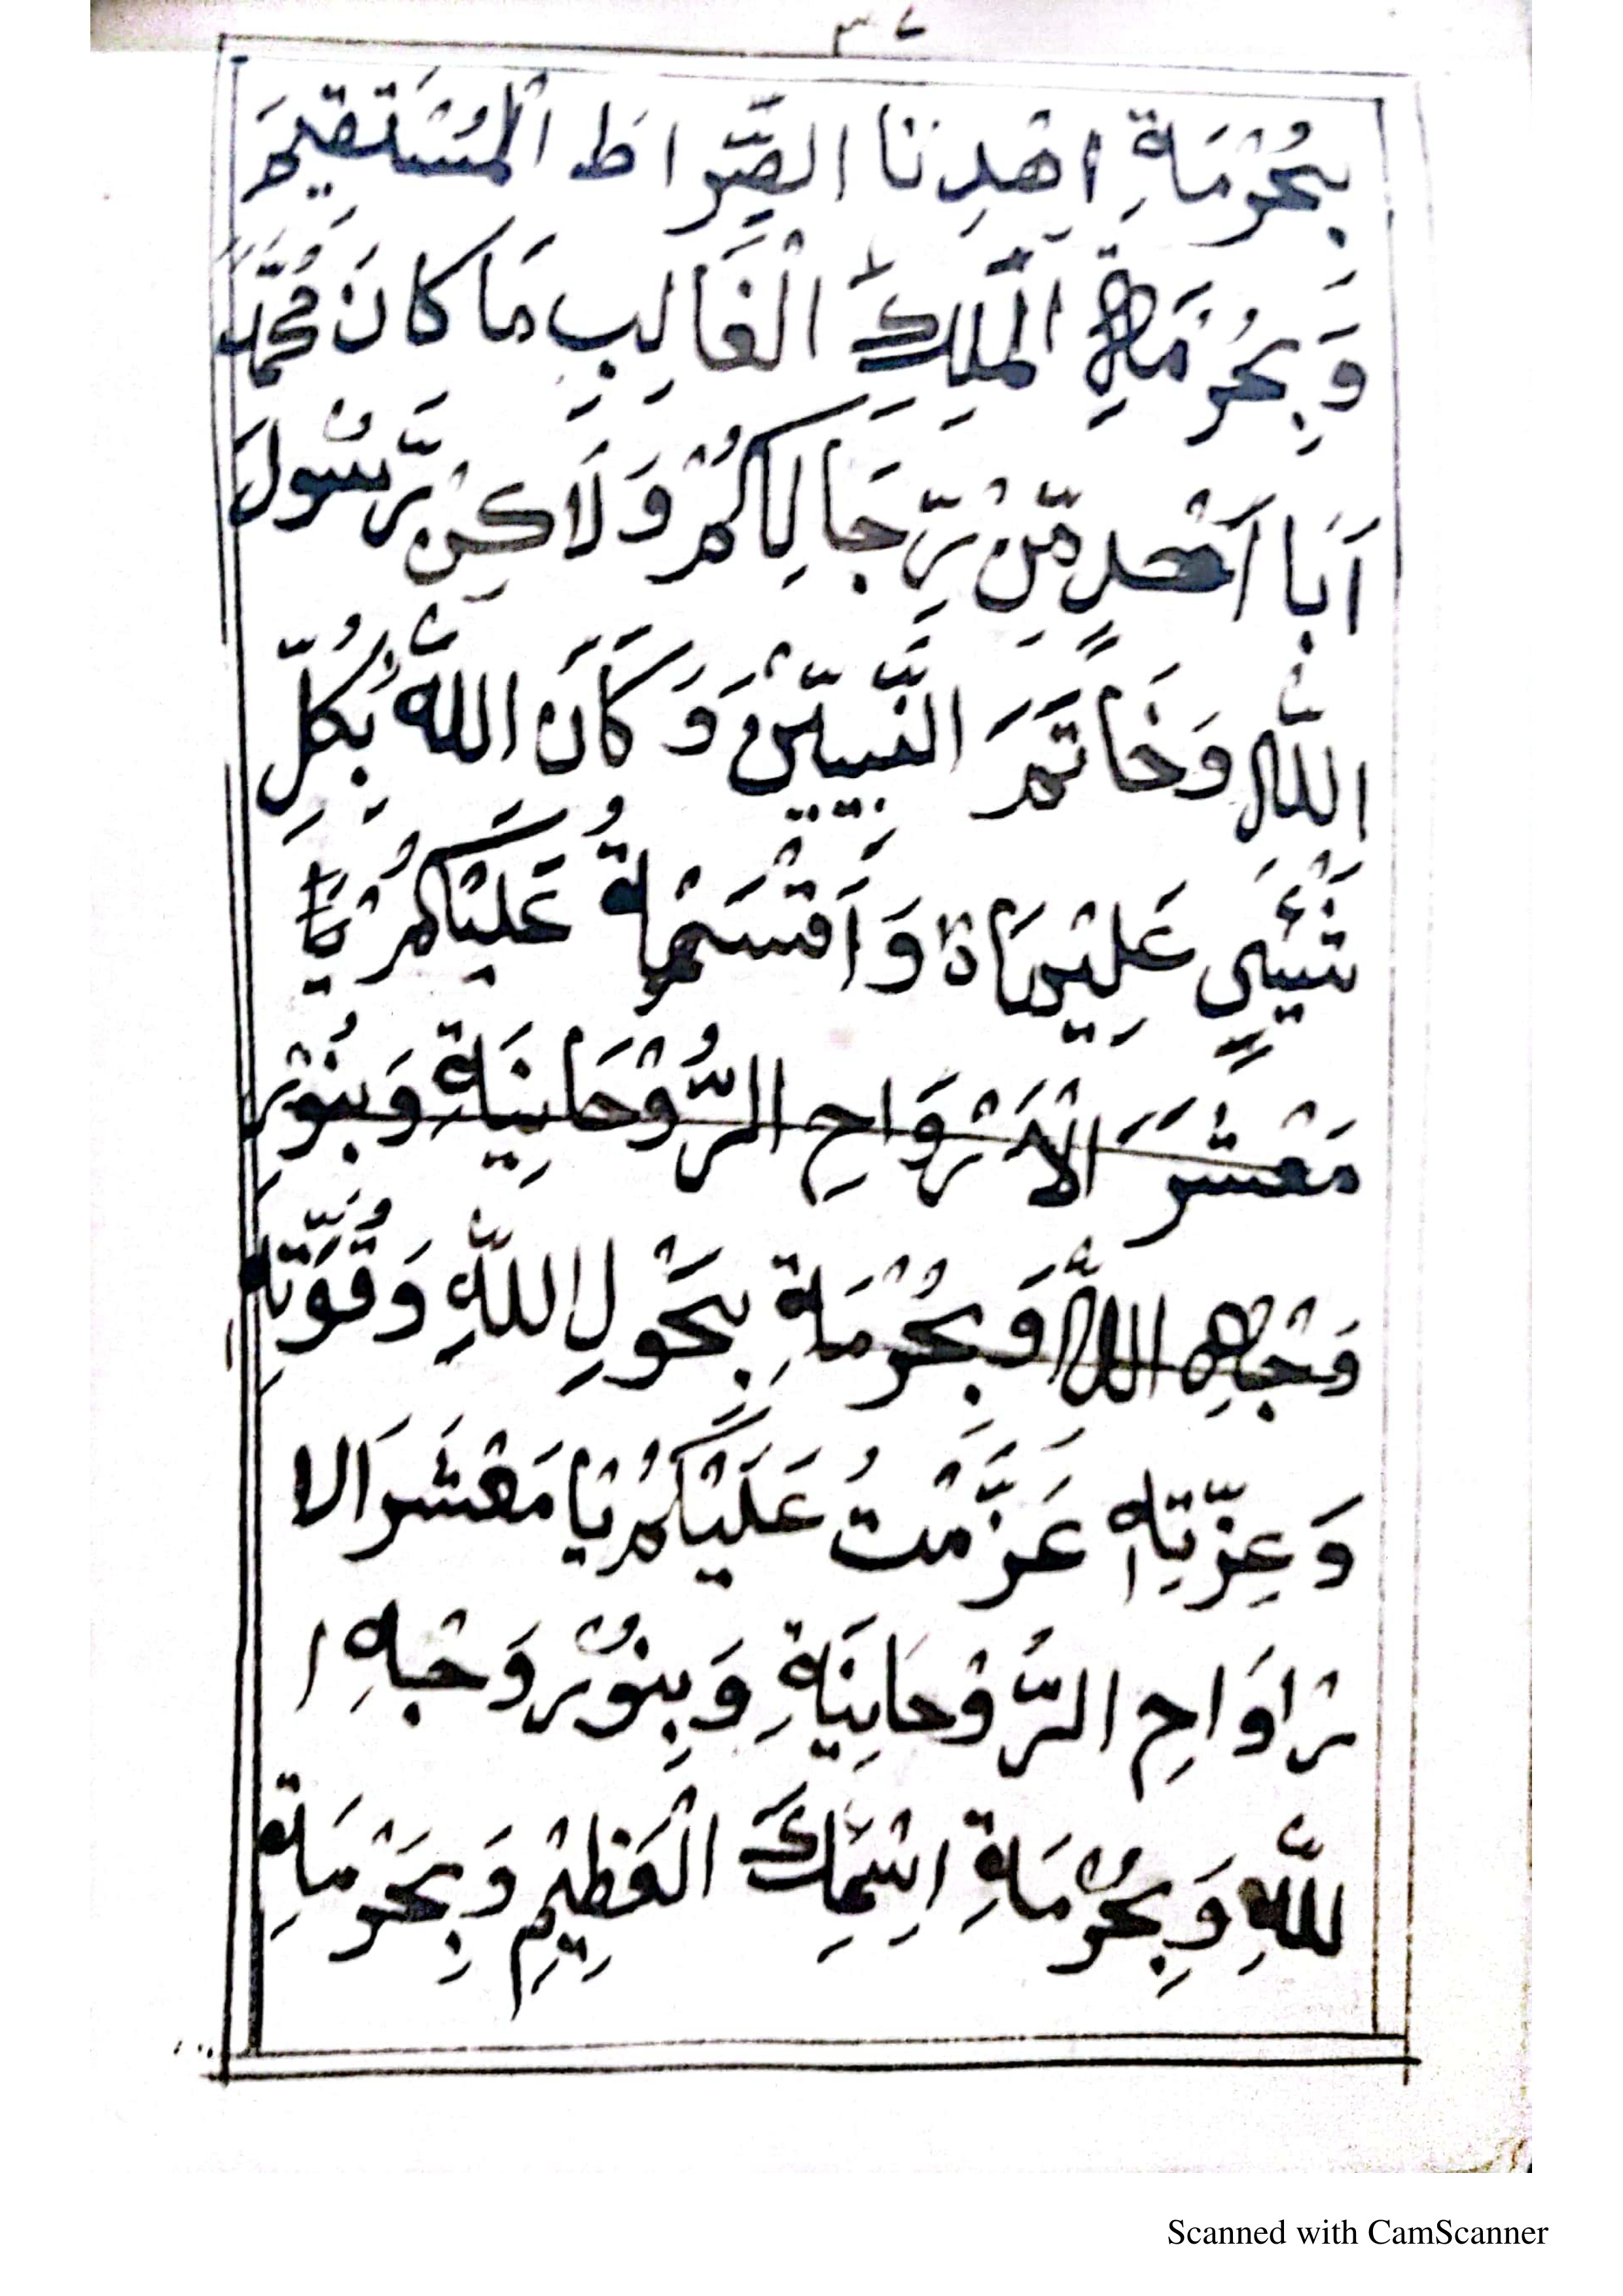 ٣٧
بِحُرْمَةِ اِهْدِنَا الصِّرَاطَ الْمُسْتَقِيْمَ
وَبِحُرْمَةِ الْمَلِكِ الْغَالِبِ مَا كَانَ مُحَمَّدٌ
اَبَا اَحَدٍ مِّنْ رِّجَالِكُمْ وَلَاكِنْ رَّسُولَ
اللّٰهِ وَخَاتَمَ النَّبِيّيْنَ وَكَانَ اللّٰهُ بِكُلِّ
شَيْئٍ عَلِيْمَاةٌ وَاَقْسَمْةُ عَلَيْكُمْ يَا
مَعْشَرَ الْاَرْوَاحِ الرُّوْحَانِيَةِ وَبِنُوْرِ
وَجْهِ اللّٰهِ وَبِحُرْمَةِ بِحَوْلِ اللّٰهِ وَقُوَّتِهٖ
وَعِزَّتِهٖ عَزَّمْتُ عَلَيْكُمْ يَا مَعْشَرَ الا
رْاوَاحِ الرُّوْحَانِيَةِ وَبِنُوْرِ وَجْهِ ا
للّٰهِ وَبِحُرْمَةِ اِسْمِكَ الْعَظِيْمِ وَبِحَرْمَةِ
Scanned with CamScanner